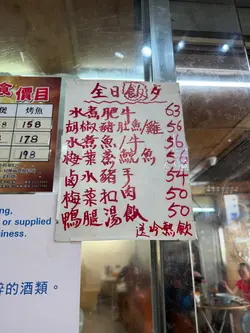 食價目
煲 烤魚
8 158
8 178
8 198
ng.
or supplied
siness.
醉的酒類。
全日飯夕
水煮肥牛 63
胡椒豬肚魚/雞 56
水煮魚/牛 56
梅菜蒸鯇魚 56
鹵水豬手 54
梅菜扣肉 50
鴨腿湯飯 50
送冷熱飲